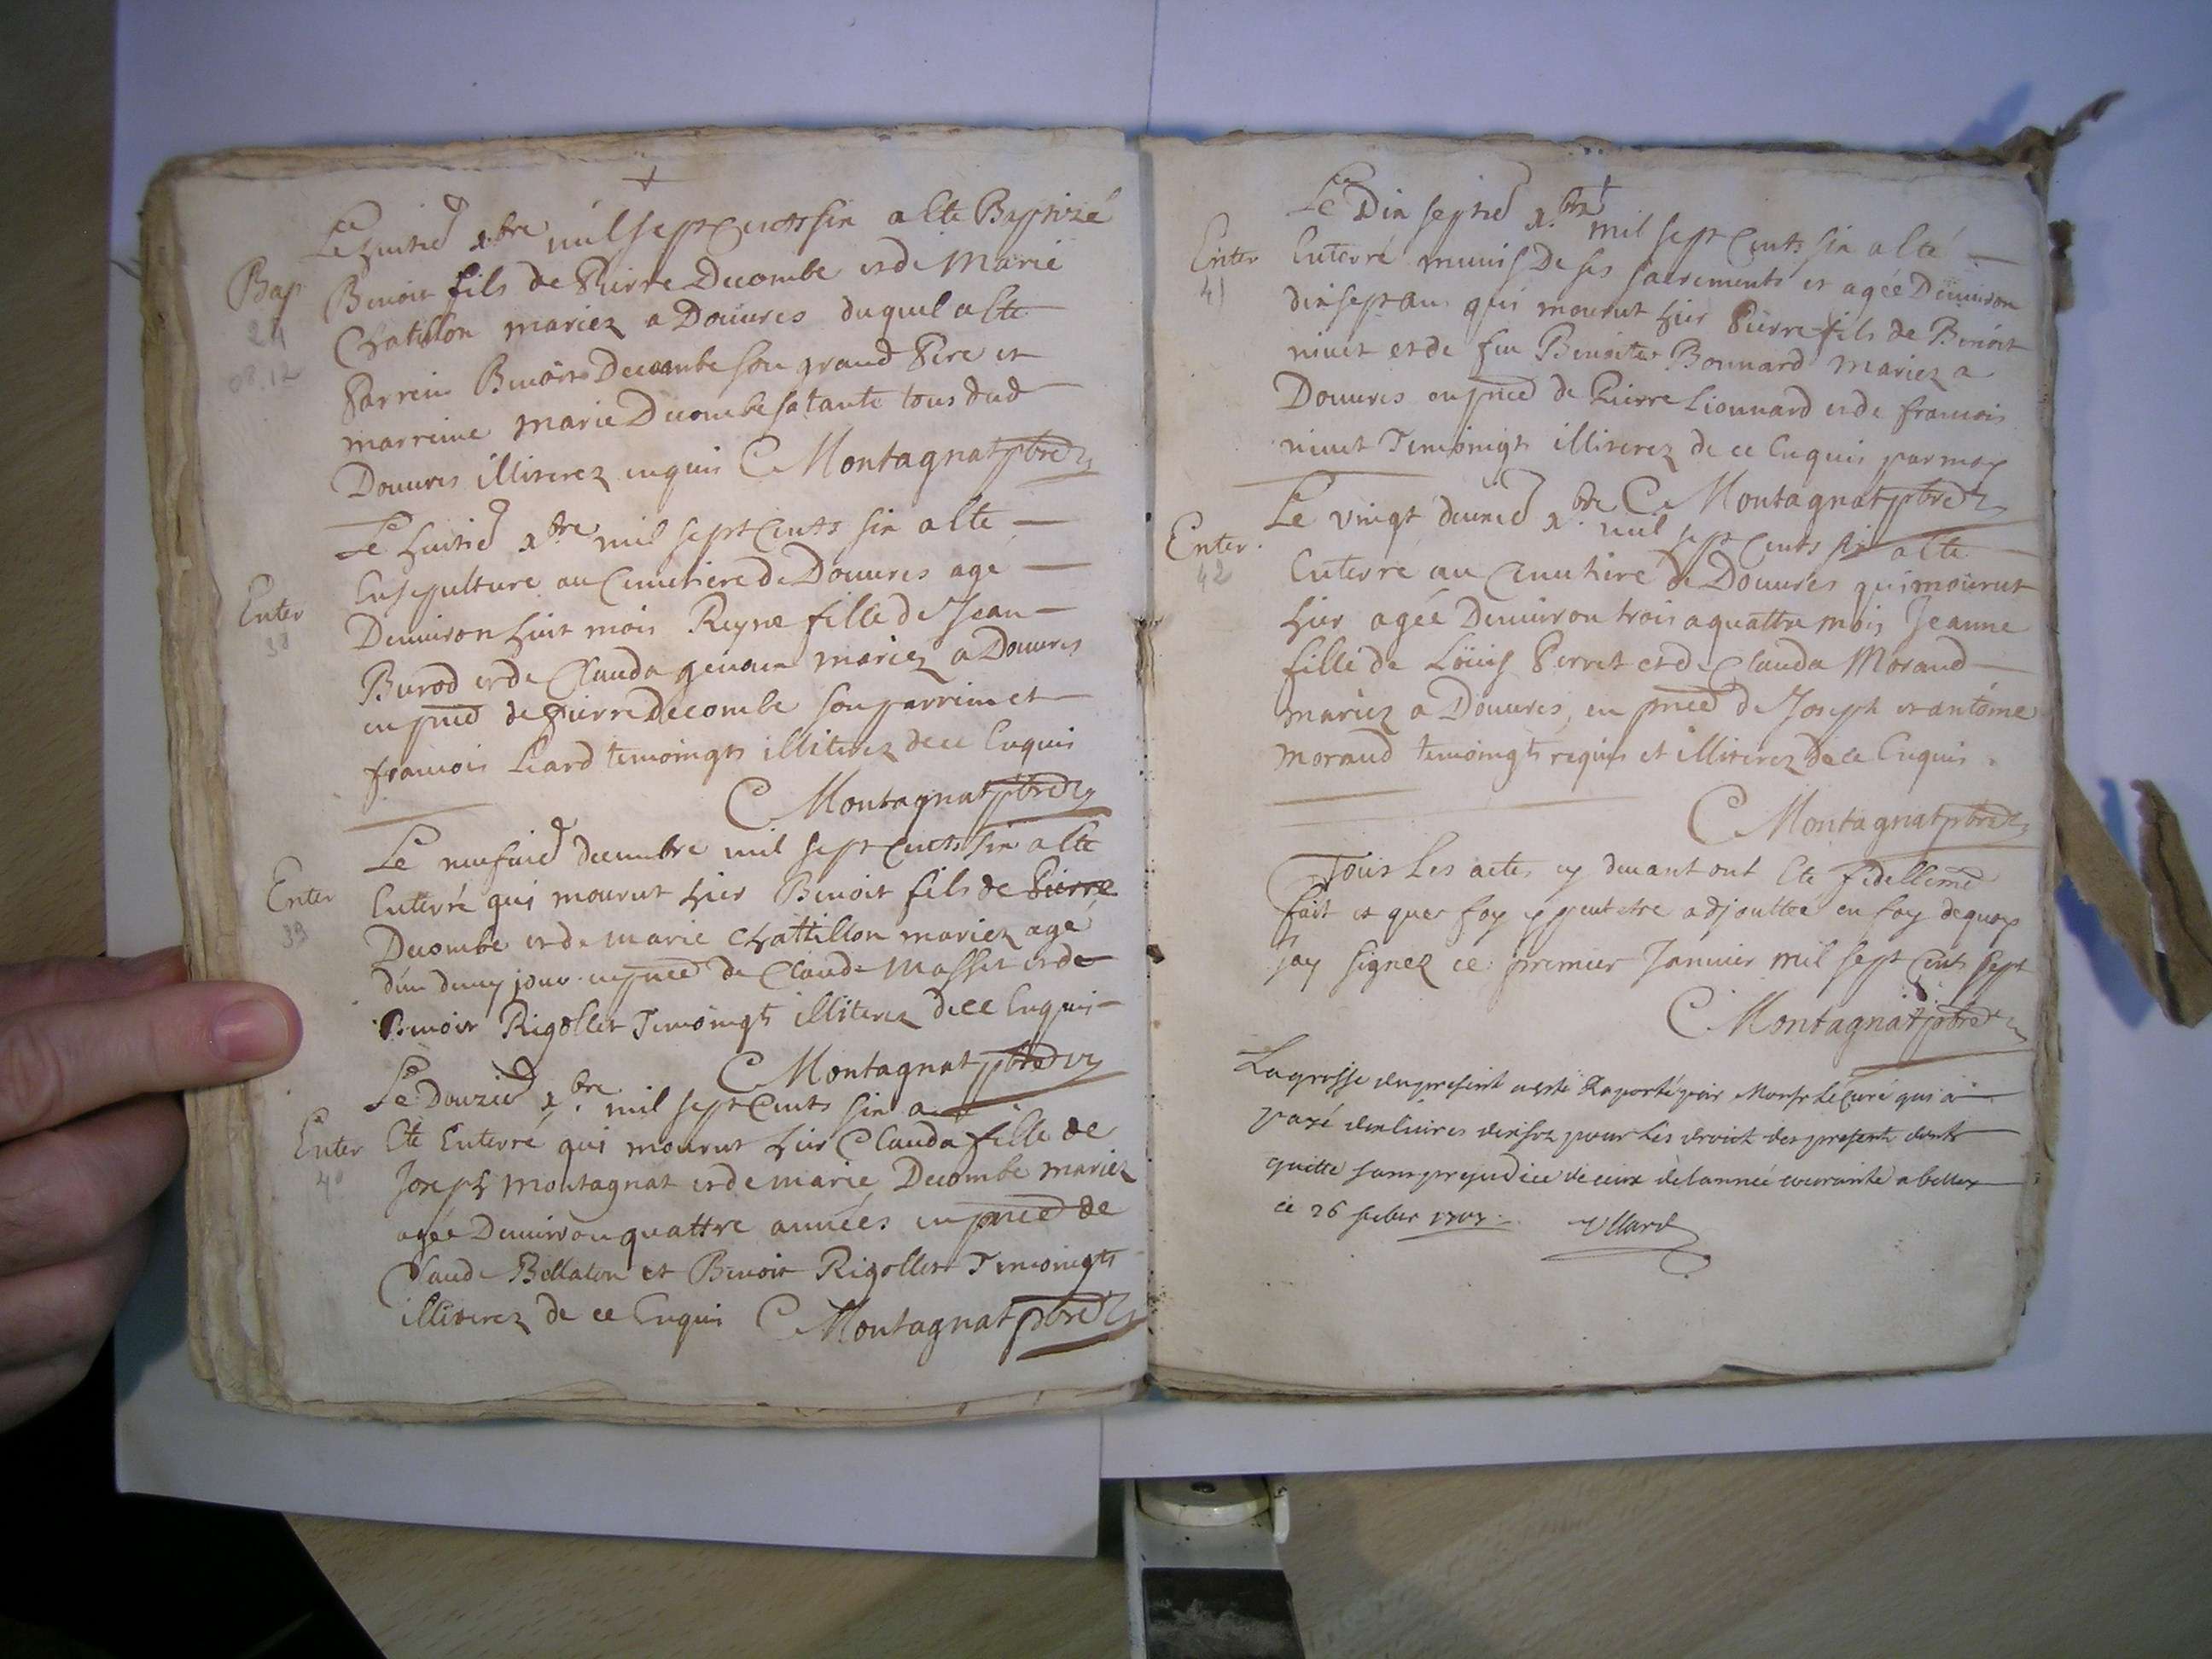 Le huitie xbre mil sept cents six a Ete Baptizé
Bap
24
08.12
Benoit fils de Pierre Decombe et de Marie
Chatillon mariez a Doüures duquel a Ete
Parrein Benoit Decombe son grand Pere et
marreine marie Decombe sa tante tous dud
Douures illiterez enquis C Montagnat pbre
Le huitie xbre mil sept cents six a Ete
Ensepulture au Cimetiere de Douures age
Enter
38
Denuiron huit mois Reyne fille de Jean
Burod et de Clauda mariez a Douures
en pnce de Pierre Decombe son parrein et
francois Liard temoingts illiterez de ce Enquis
C Montagnat pbre
Le neufuie decembre mil sept cents six a Ete
Enter
39
Enterré qui mourut hier Benoit fils de Pierre
Decombe et de marie Chattillon mariez agé
d'un demy jour en pnce de Claude Masset et de
Benoit Rigollet Temoingts illiterez de ce Enquis
C Montagnat pbre
Le Douzie xbre mil sept Cents six a
Enter
40
Ete Enterré qui mourut hier Clauda fille de
Joseph Montagnat et de marie Decombe mariez
agée Denuiron quattre années en pnce de
Claude Bellaton et Benoit Rigollet Temoingts
illiterez de ce Enquis C Montagnat pbre
Le Dix septie xbre mil sept Cents six a Eté
Enter
41
Enterré munis De ses sacrements et agée Denuiron
dix sept ans qui mourut hier Pierre fils de Benoit
niuet et de feu Benoite Bonnard mariez a
Douures en pnce de Pierre Lionnard et de francois
niuet Temoingts illiterez de ce Enquis par moy
C Montagnat pbre
Le vingt deuxie xbre mil sept Cents six a Ete
Enter
42
Enterre au Cimetiere de Douures qui mourut
hier agée Denuiron trois a quattre mois Jeanne
fille de Loüis Perret et de Clauda Morand
mariez a Douures, en pnce de Joseph et antoine
morand temoingts requis et illiterez de ce Enquis.
C Montagnat pbre
Tous Les actes cy deuant ont Ete fidelleme
fait et que foy y peut etre adjouttée en foy de quoy
Jay signez ce premier Januier mil sept Cents sept
C Montagnat pbre
La grosse du present a esté Raporté par Monsr Le Curé qui a
payé deux liures dix sols pour Les droict des presente dont
quitte sans prejudice de ceux de lannée courante a belley
ce 26 1707